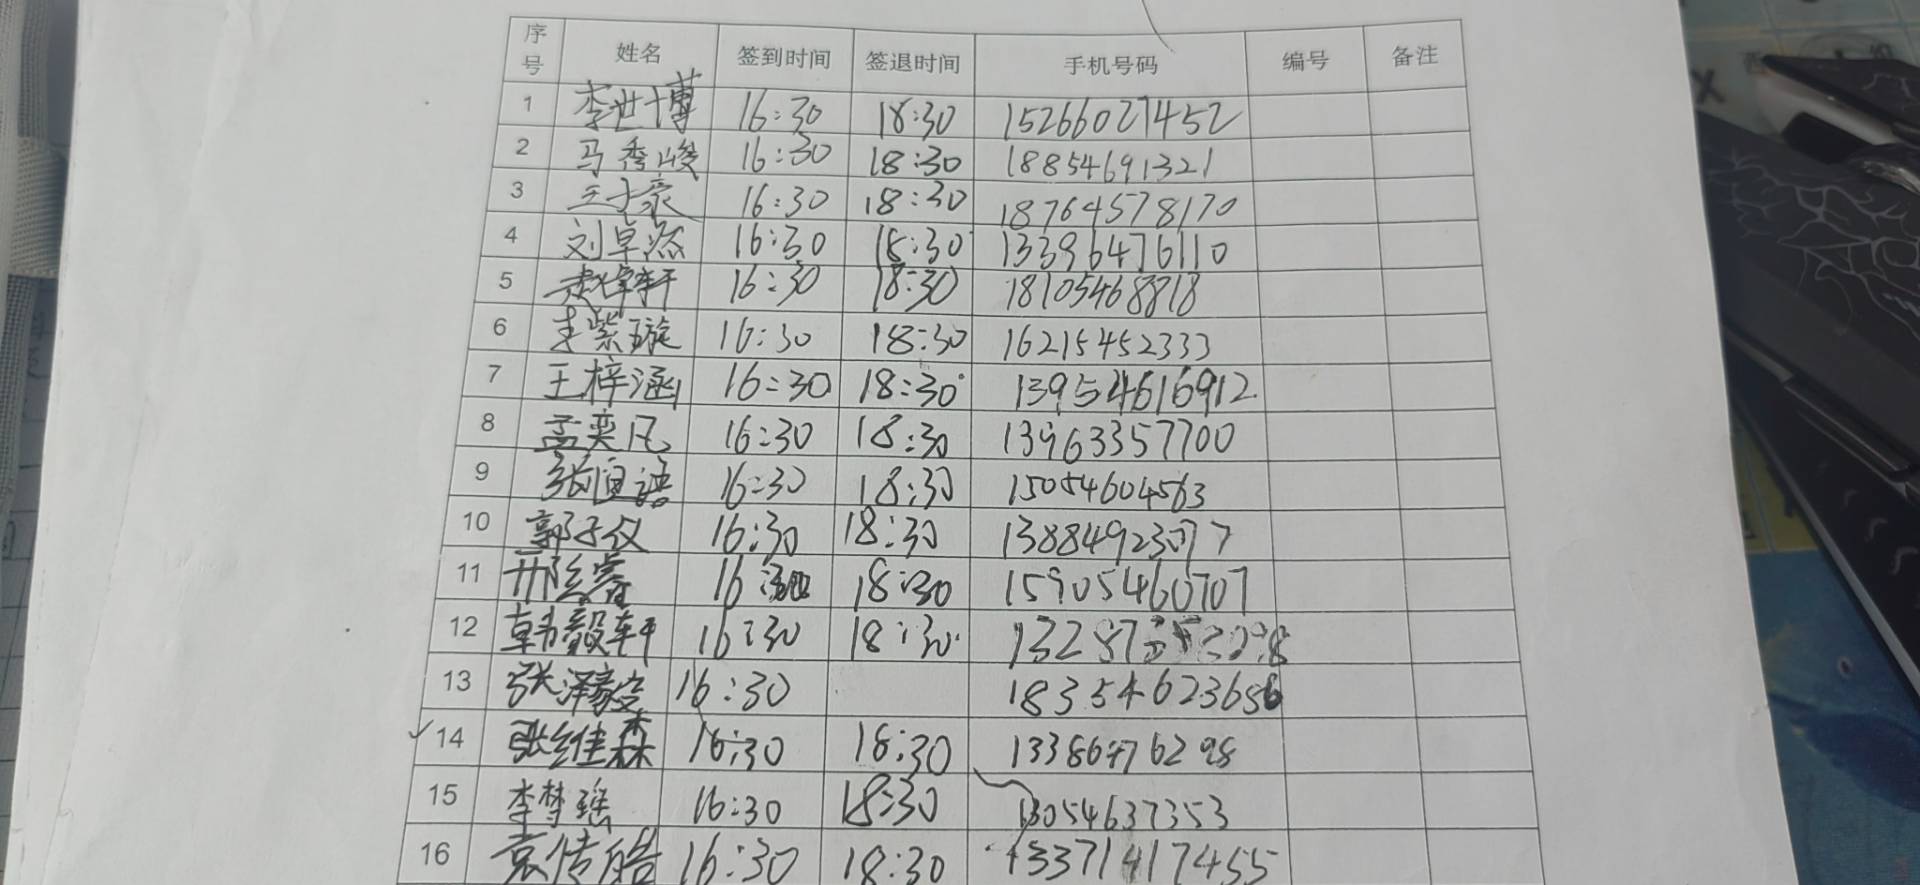 序号 姓名 签到时间 签退时间 手机号码 编号 备注
1 李世博 16:30 18:30 15266027452
2 马秀峻 16:30 18:30 18854691321
3 王子豪 16:30 18:30 18764578170
4 刘卓然 16:30 18:30 13396476110
5 赵梓轩 16:30 18:30 18105468818
6 李紫璇 16:30 18:30 16215452333
7 王梓涵 16:30 18:30 13954616912
8 孟奕凡 16:30 18:30 13963357700
9 张恒语 16:30 18:30 15054604563
10 郭子仪 16:30 18:30 13884923077
11 16 18:30 15905460707
12 韩毅轩 16:30 18:30
13 张泽 16:30 18354623656
14 张维森 16:30 18:30
15 李梦瑶 16:30 18:30 13054637353
16 袁传皓 16:30 18:30 13371417455